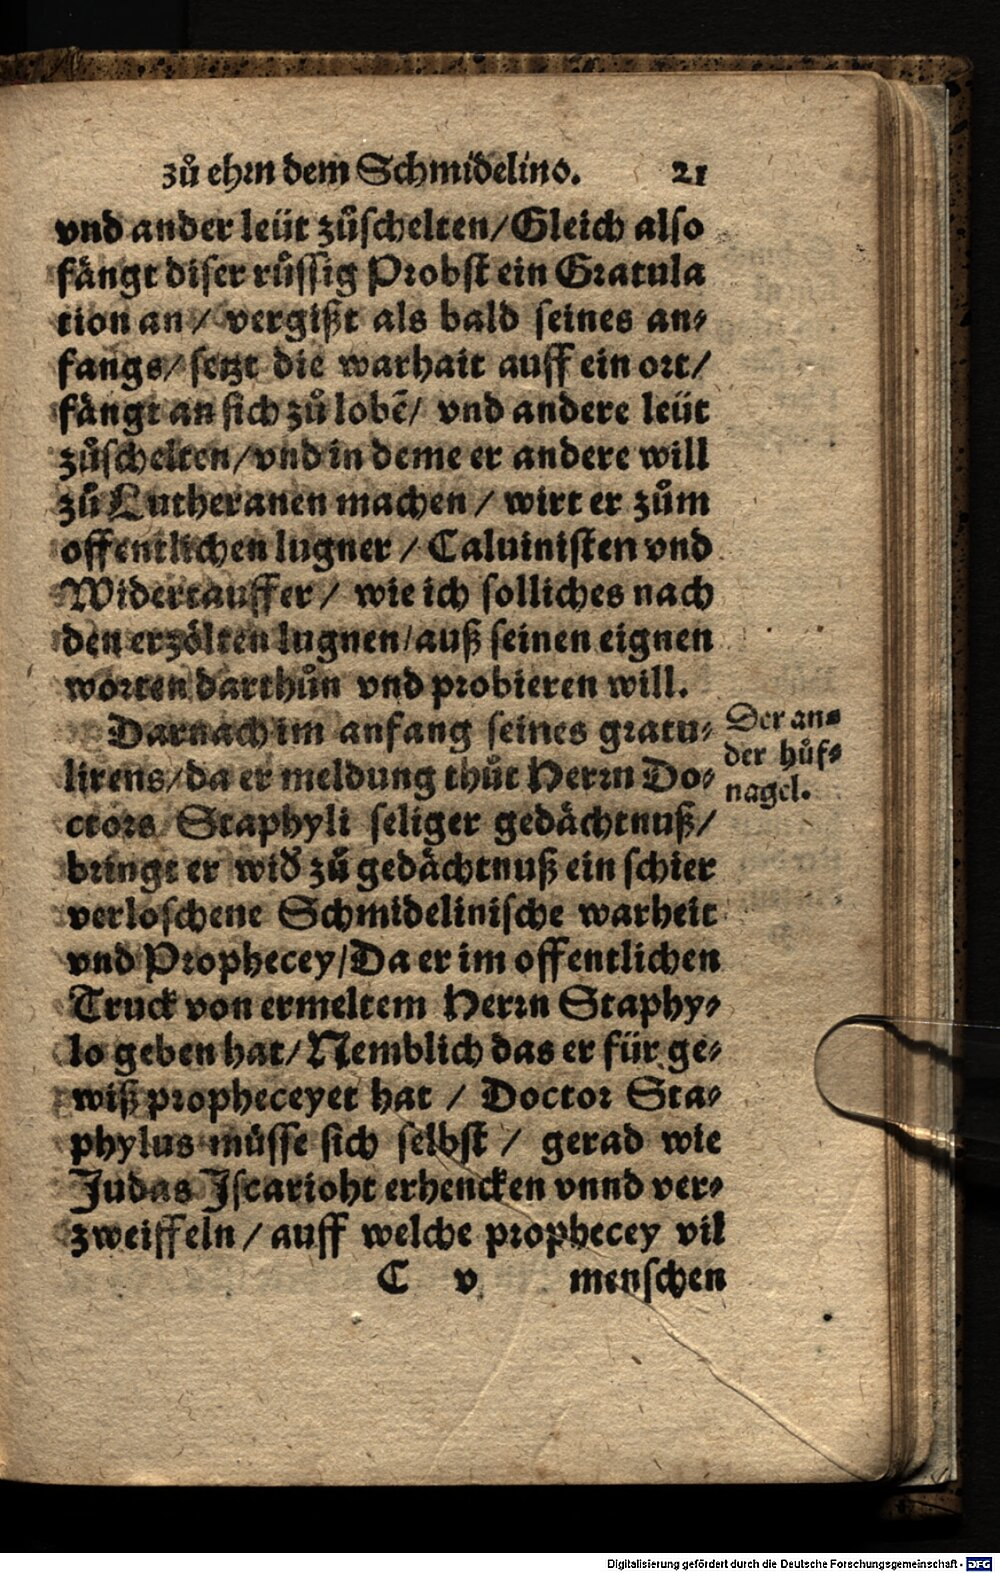 zů ehrn dem Schmidelino. 21
vnd ander leüt zůschelten/Gleich also
fängt diser růssig Probst ein Gratula
tion an/ vergißt als bald seines an⸗
fangs/ setzt die warhait auff ein ort/
fängt an sich zů lobē/ vnd andere leüt
zůschelten/vnd in deme er andere will
zů Lutheranen machen / wirt er zům
offentlichen lugner / Caluinisten vnd
Widertauffer / wie ich solliches nach
den erzölten lugnen/auß seinen eignen
worten darthůn vnd probieren will.
Darnach im anfang seines gratu⸗
lirens/da er meldung thůt Herrn Do⸗
ctors Staphyli seliger gedächtnuß/
bringt er wid̄ zů gedächtnuß ein schier
verloschene Schmidelinische warheit
vnd Prophecey/Da er im offentlichen
Truck von ermeltem Herrn Staphy⸗
lo geben hat/Nemblich das er für ge⸗
wiß propheceyet hat / Doctor Sta⸗
phylus müsse sich selbst / gerad wie
Judas Iscarioht erhencken vnnd ver⸗
zweiffeln / auff welche prophecey vil
C v menschen
Der an⸗
der hůf⸗
nagel.
Digitalisierung gefördert durch die Deutsche Forschungsgemeinschaft - DFG